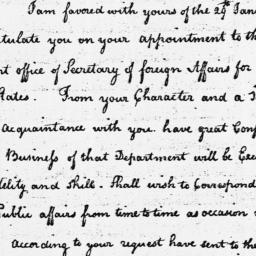 I am favored with yours of the 24th Jan
tulate you on your appointment to th
nt office of Secretary of foreign Affairs for
States. From your Character and a
Acquaintance with you. have great Conf
Business of that Department will be Exe
delity and Skill. Shall wish to Correspond
Public affairs from time to time as occasion
According to your request have sent to the